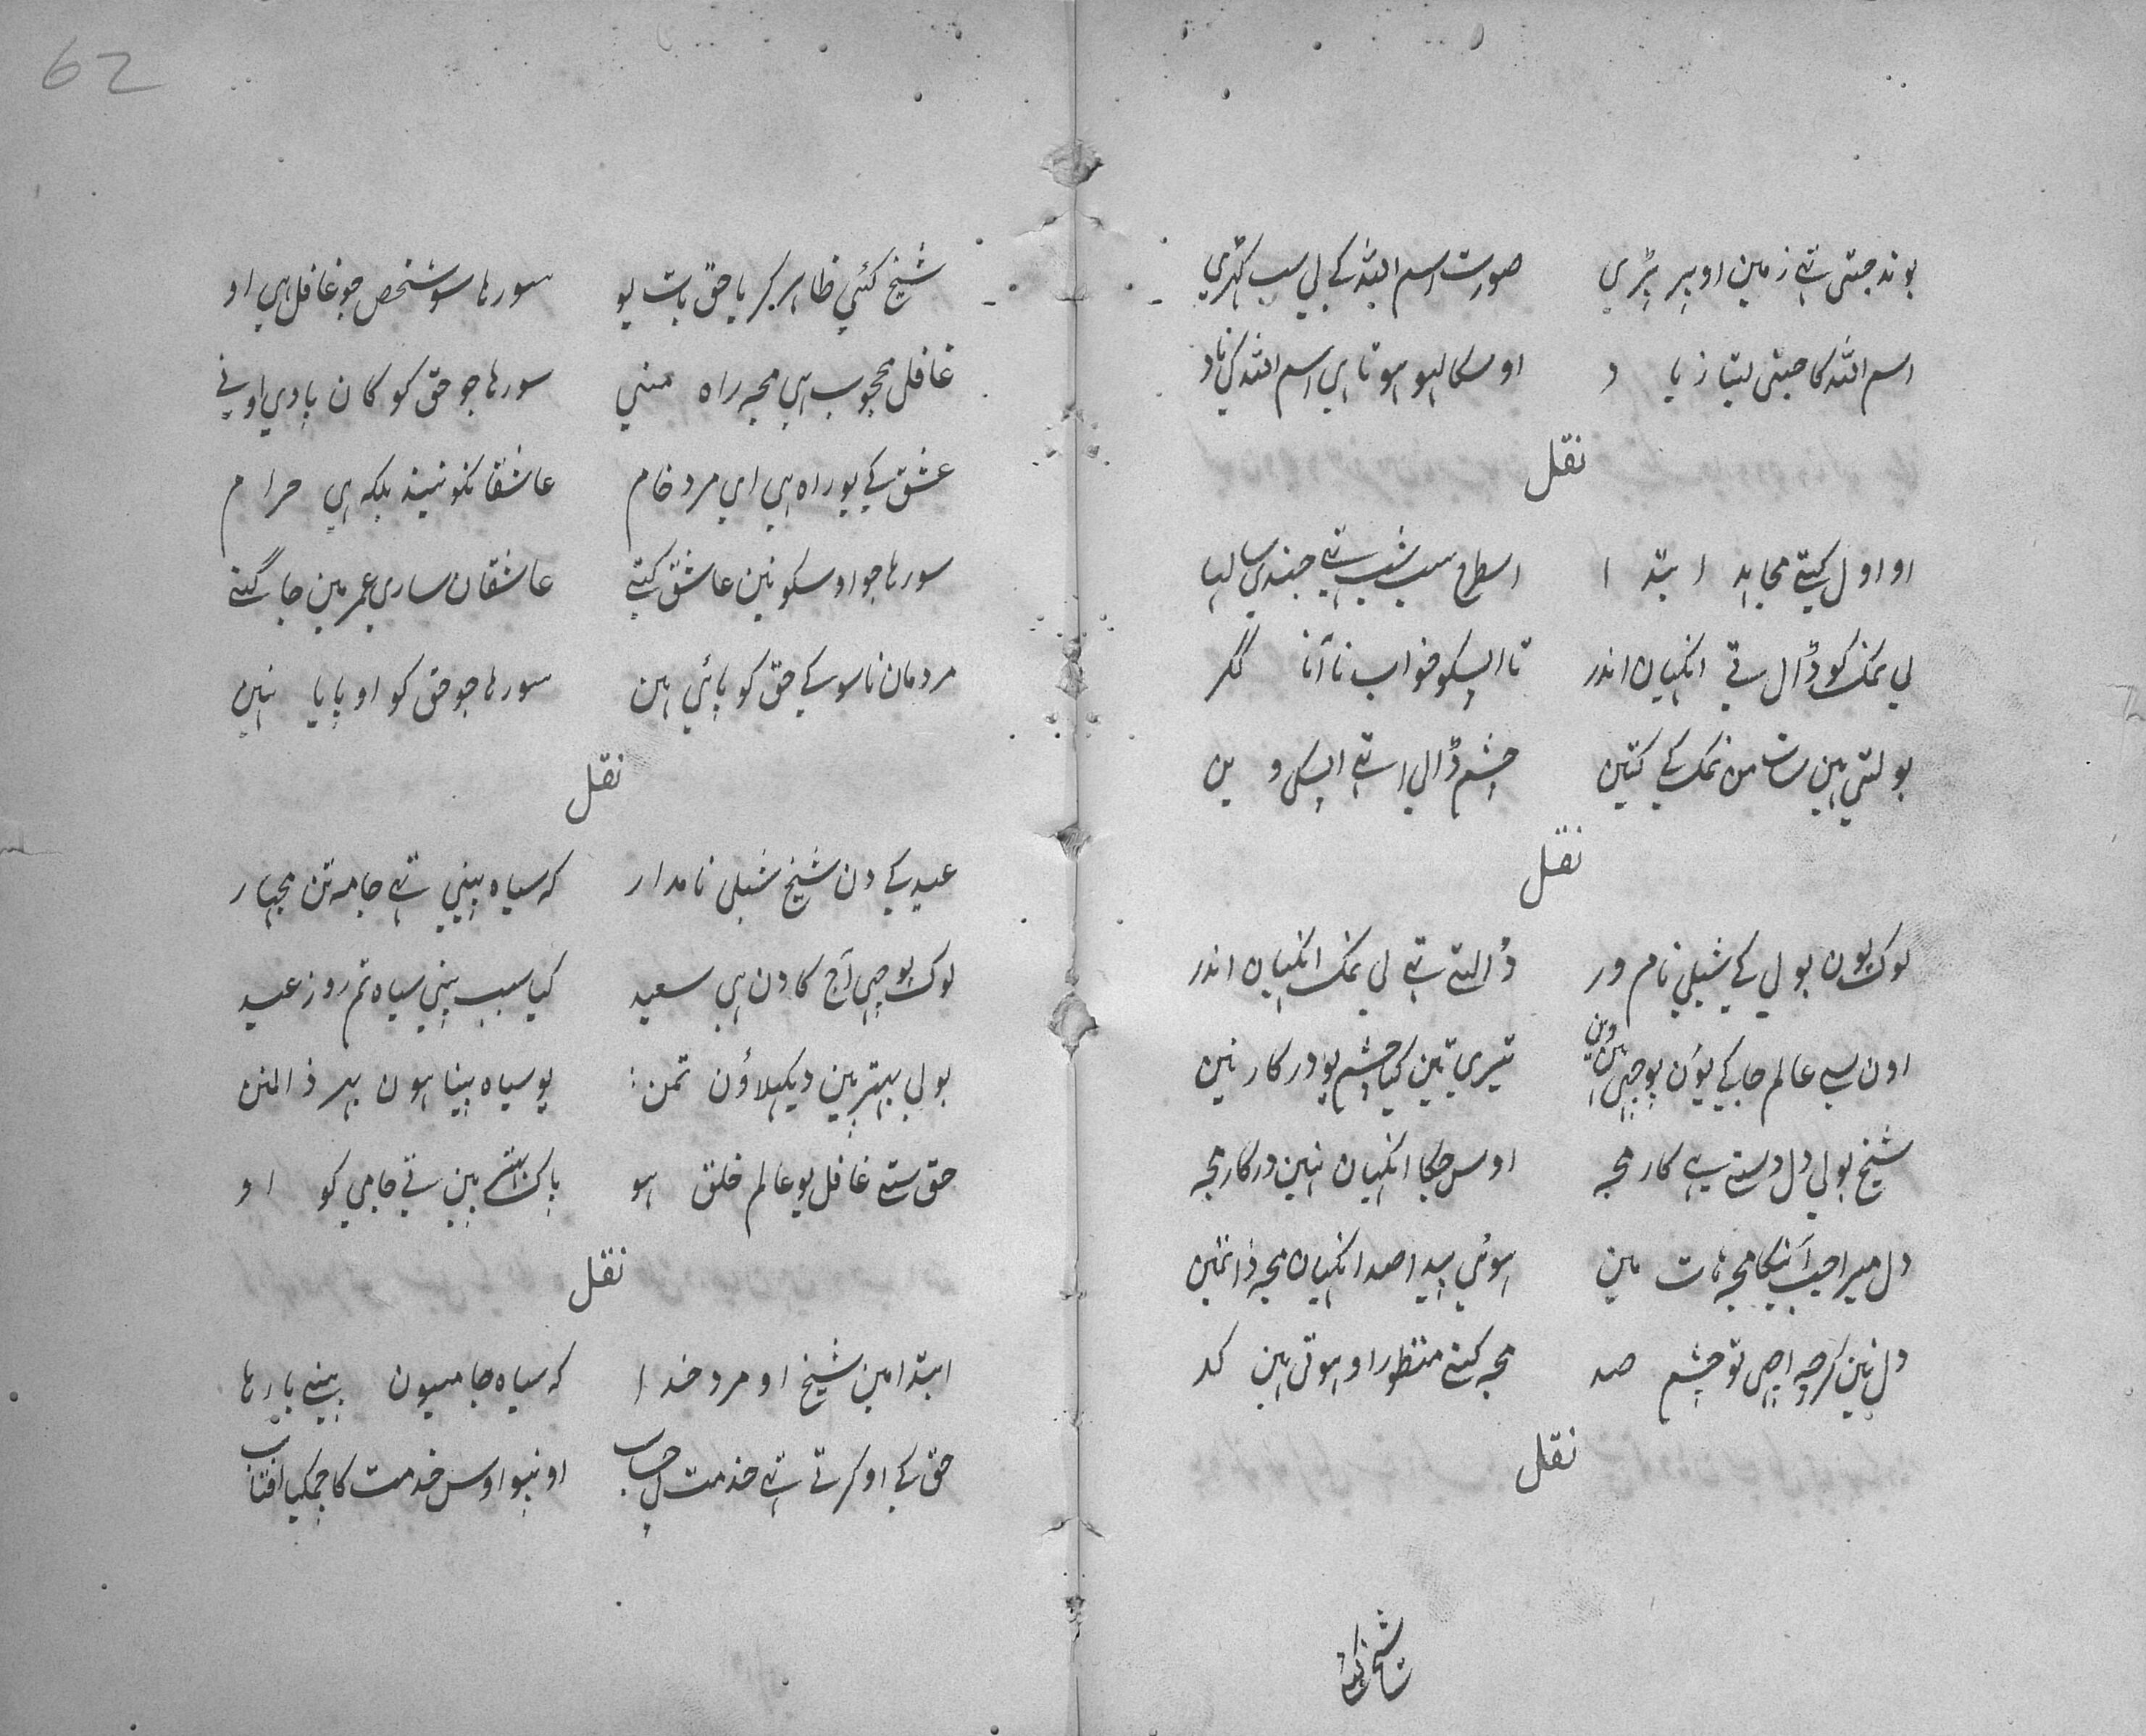 62
بوند جتی تہے زمین اوپر پڑی صورت اسم اللہ کے لی سب کہڑی
اسم اللہ کا جتی لیتا زیا د اوسکا لہو ہوتا ہی اسم اللہ کی ناد
نقل
او اول کیتے مجاہد ابتد ا اسطرح سب شب تہے جندی سالہا
لی نمک کو ڈالتے انکہیان اندر تا ایسکو خواب نا آنا مگر
بولتی ہین سات من نمک کے کتین چشم ڈالی تہے ایسکی و ین
نقل
لوک یون بولی کے شبلی نام ور ڈالتے تہے لی نمک انکہیان اندر
اون سے عالم جاکے یون پوچہی ہین وین تیری تین کیا چشم یو درکار نین
شیخ بولی دل وستے ہے کار مجہ اوس جگا انکہیان نہین درکار مجہ
دل میرا جب آئیگا مجہ ہات مین ہوئی پیدا صد انکہیان مجہ ذاتمین
دل نین کرچہ اچہی تو چشم صد مجہ کنے منظور او ہوتی ہین کد
نقل
شیخ کئے
شیخ کئی ظاہر کریا حق بات یو سو رہا سو شخص جو غافل ہی او
غافل محجوب ہی مجہ راہ منی سو رہا جو حق کو کان پادی اونے
عشق کے یو راہ ہی ای مرد خام عاشقانکو نیند بلکہ ہی حرام
سو رہا جو اوسکو نین عاشق کتے عاشقان ساری عمر مین جاگتے
مردمان ناسوکے حق کو پائی ہین سو رہا جو حق کو او پایا نہین
نقل
عید کے دن شیخ شبلی نامدار کہ سیاہ پہنی تہے جامہ تن مجہار
لوک پوچہی آج کا دن ہی سعید کیا سبب پہنی سیاہ تم روز عید
بولی بہتر مین دیکہلاؤن تمن یو سیاہ پہنا ہون بہر ذالمنن
حق ستے غافل یو عالم خلق ہو پاک ستے ہین تے جامی کو او
نقل
ابتدا مین شیخ او مرد خدا کہ سیاہ جامیون پہنے بارہا
حق کے او کرتے تہے خدمت بی حساب اونپو اوس خدمت کا چمکیا افتاب